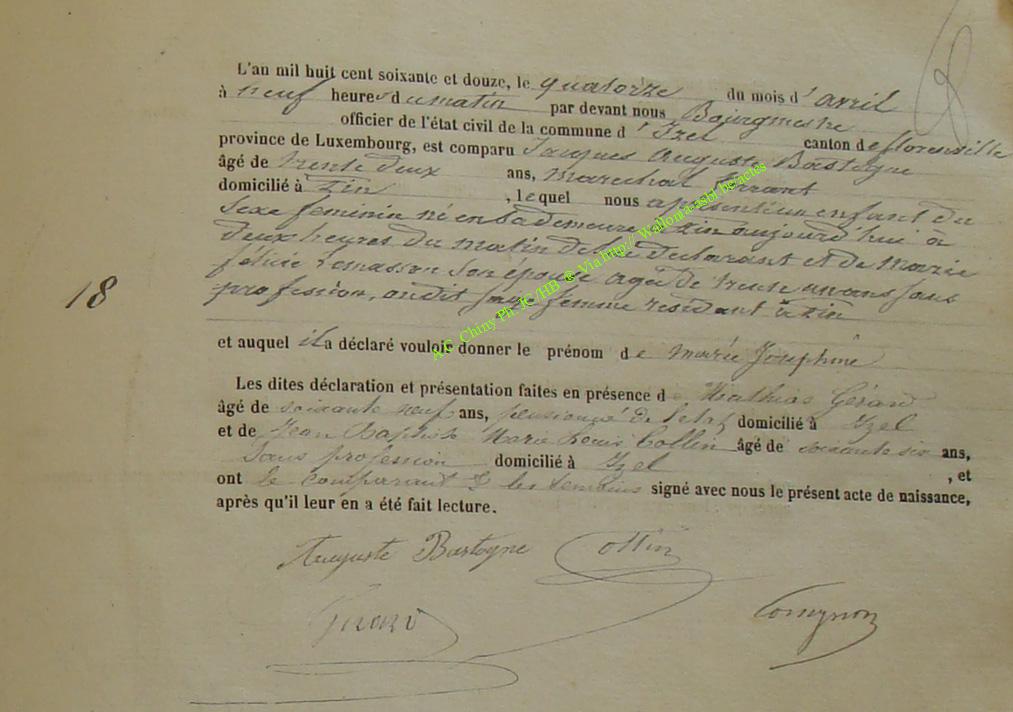 L'an mil huit cent soixante et douze, le quatorze du mois d'avril
à neuf heures du matin par devant nous Bourgmestre
officier de l'état civil de la commune d'Izel canton de florenville
province de Luxembourg, est comparu Jacques Auguste Bastogne
âgé de trente deux ans, Marechal ferrant
domicilié à , lequel nous a présenté un enfant du
Sexe feminin né en sa demeure à aujourd'hui à
deux heures du matin de lui declarant et de Marie
felicie son épouse agée de trente un ans sans
profession, sage femme résidant à
18
et auquel il a déclaré vouloir donner le prénom de Marie Josephine
Les dites déclaration et présentation faites en présence de Mathias Gérard
âgé de soixante neuf ans, pensionné de l'état domicilié à Izel
et de Jean Baptiste Marie Louis Collin âgé de soixante six ans,
Sans profession domicilié à Izel , et
ont le comparant & les temoins signé avec nous le présent acte de naissance,
après qu'il leur en a été fait lecture.
Auguste Bastogne Collin
Gerard
A.C. Chiny Ph. JC /HB ® Via http:// Wallonia-asbl.be/actes